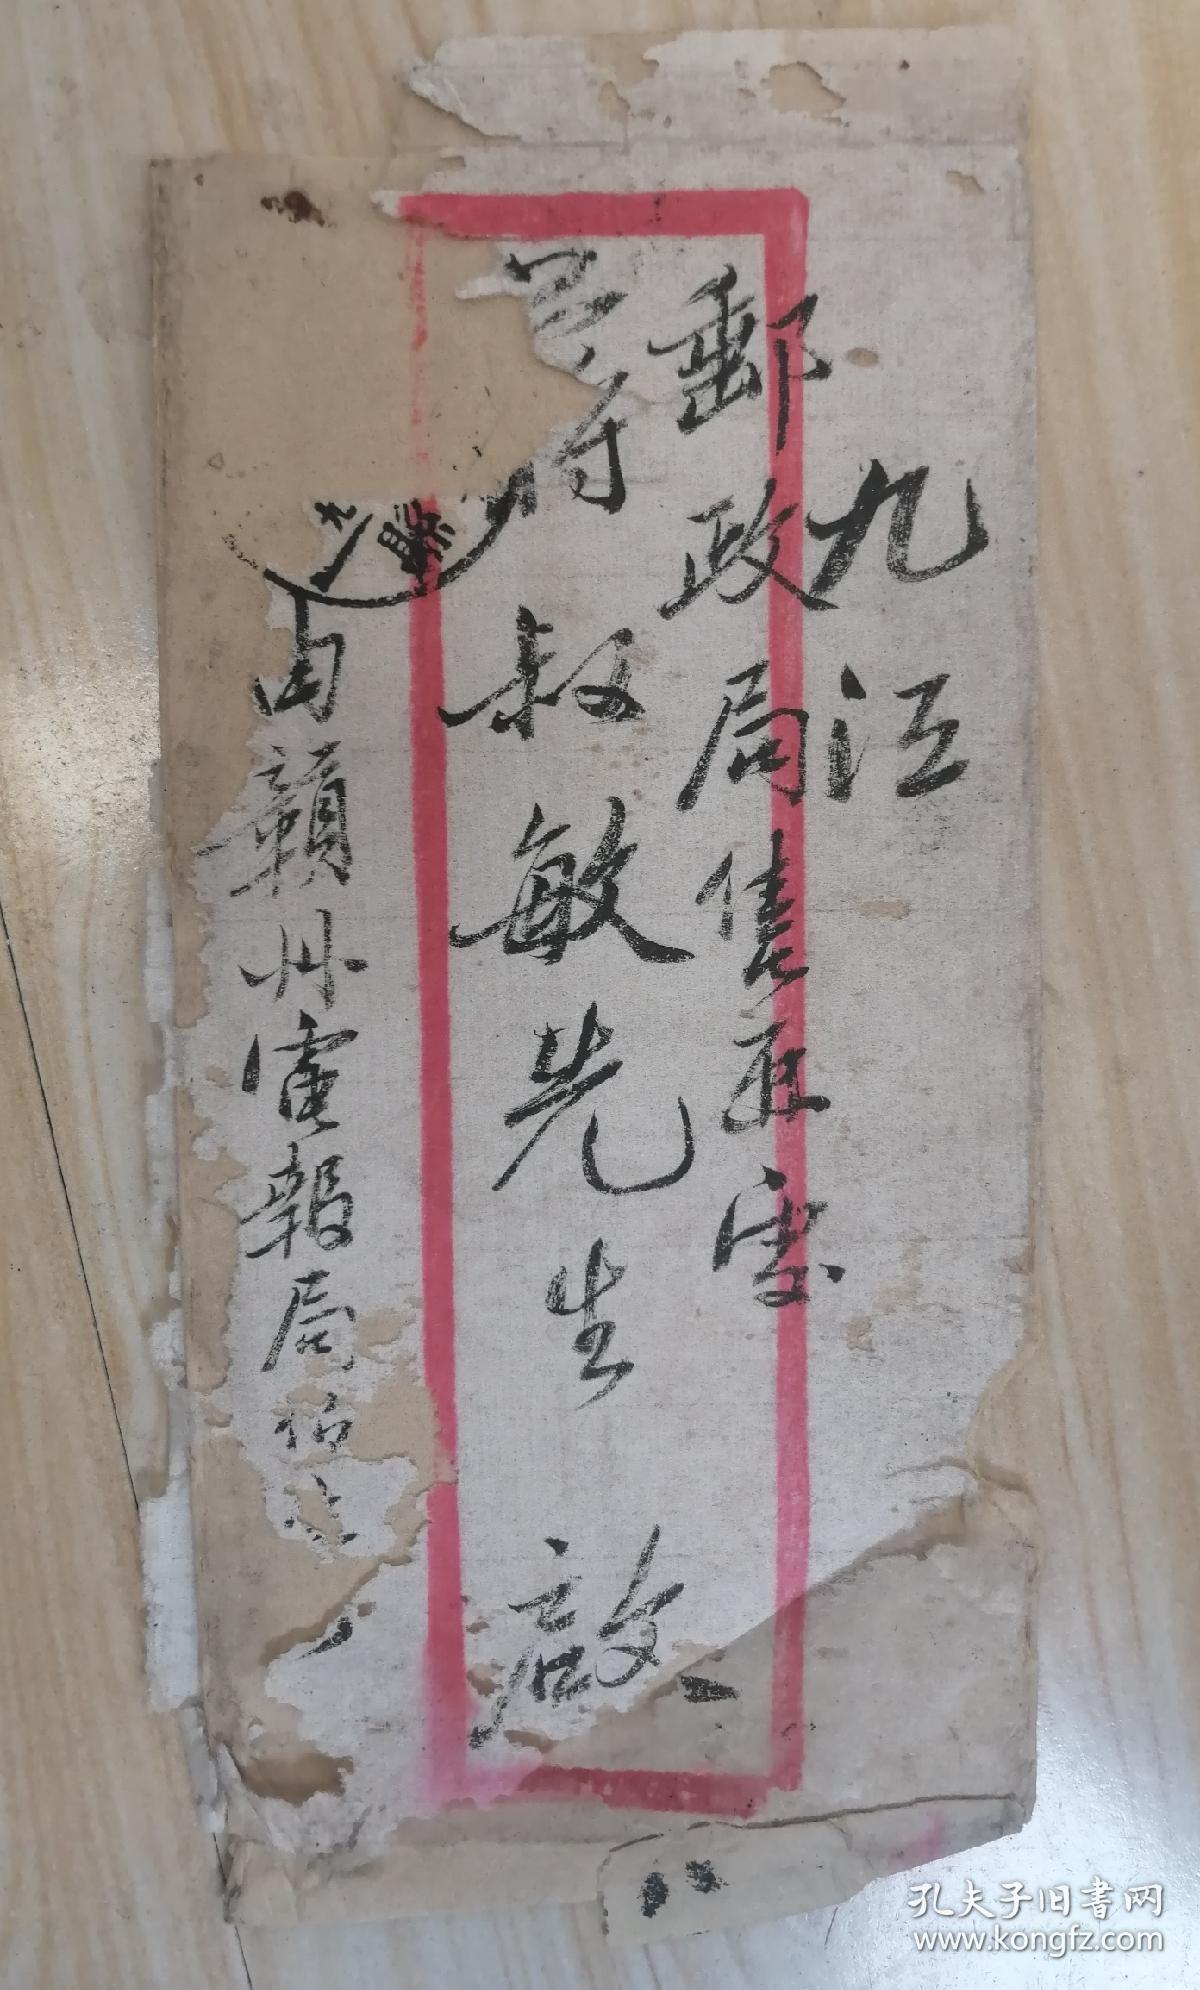 九江
郵政局售票處
蔣叔敏先生 啟
由贛州電報局
九
八
孔夫子旧书网
www.kongfz.com